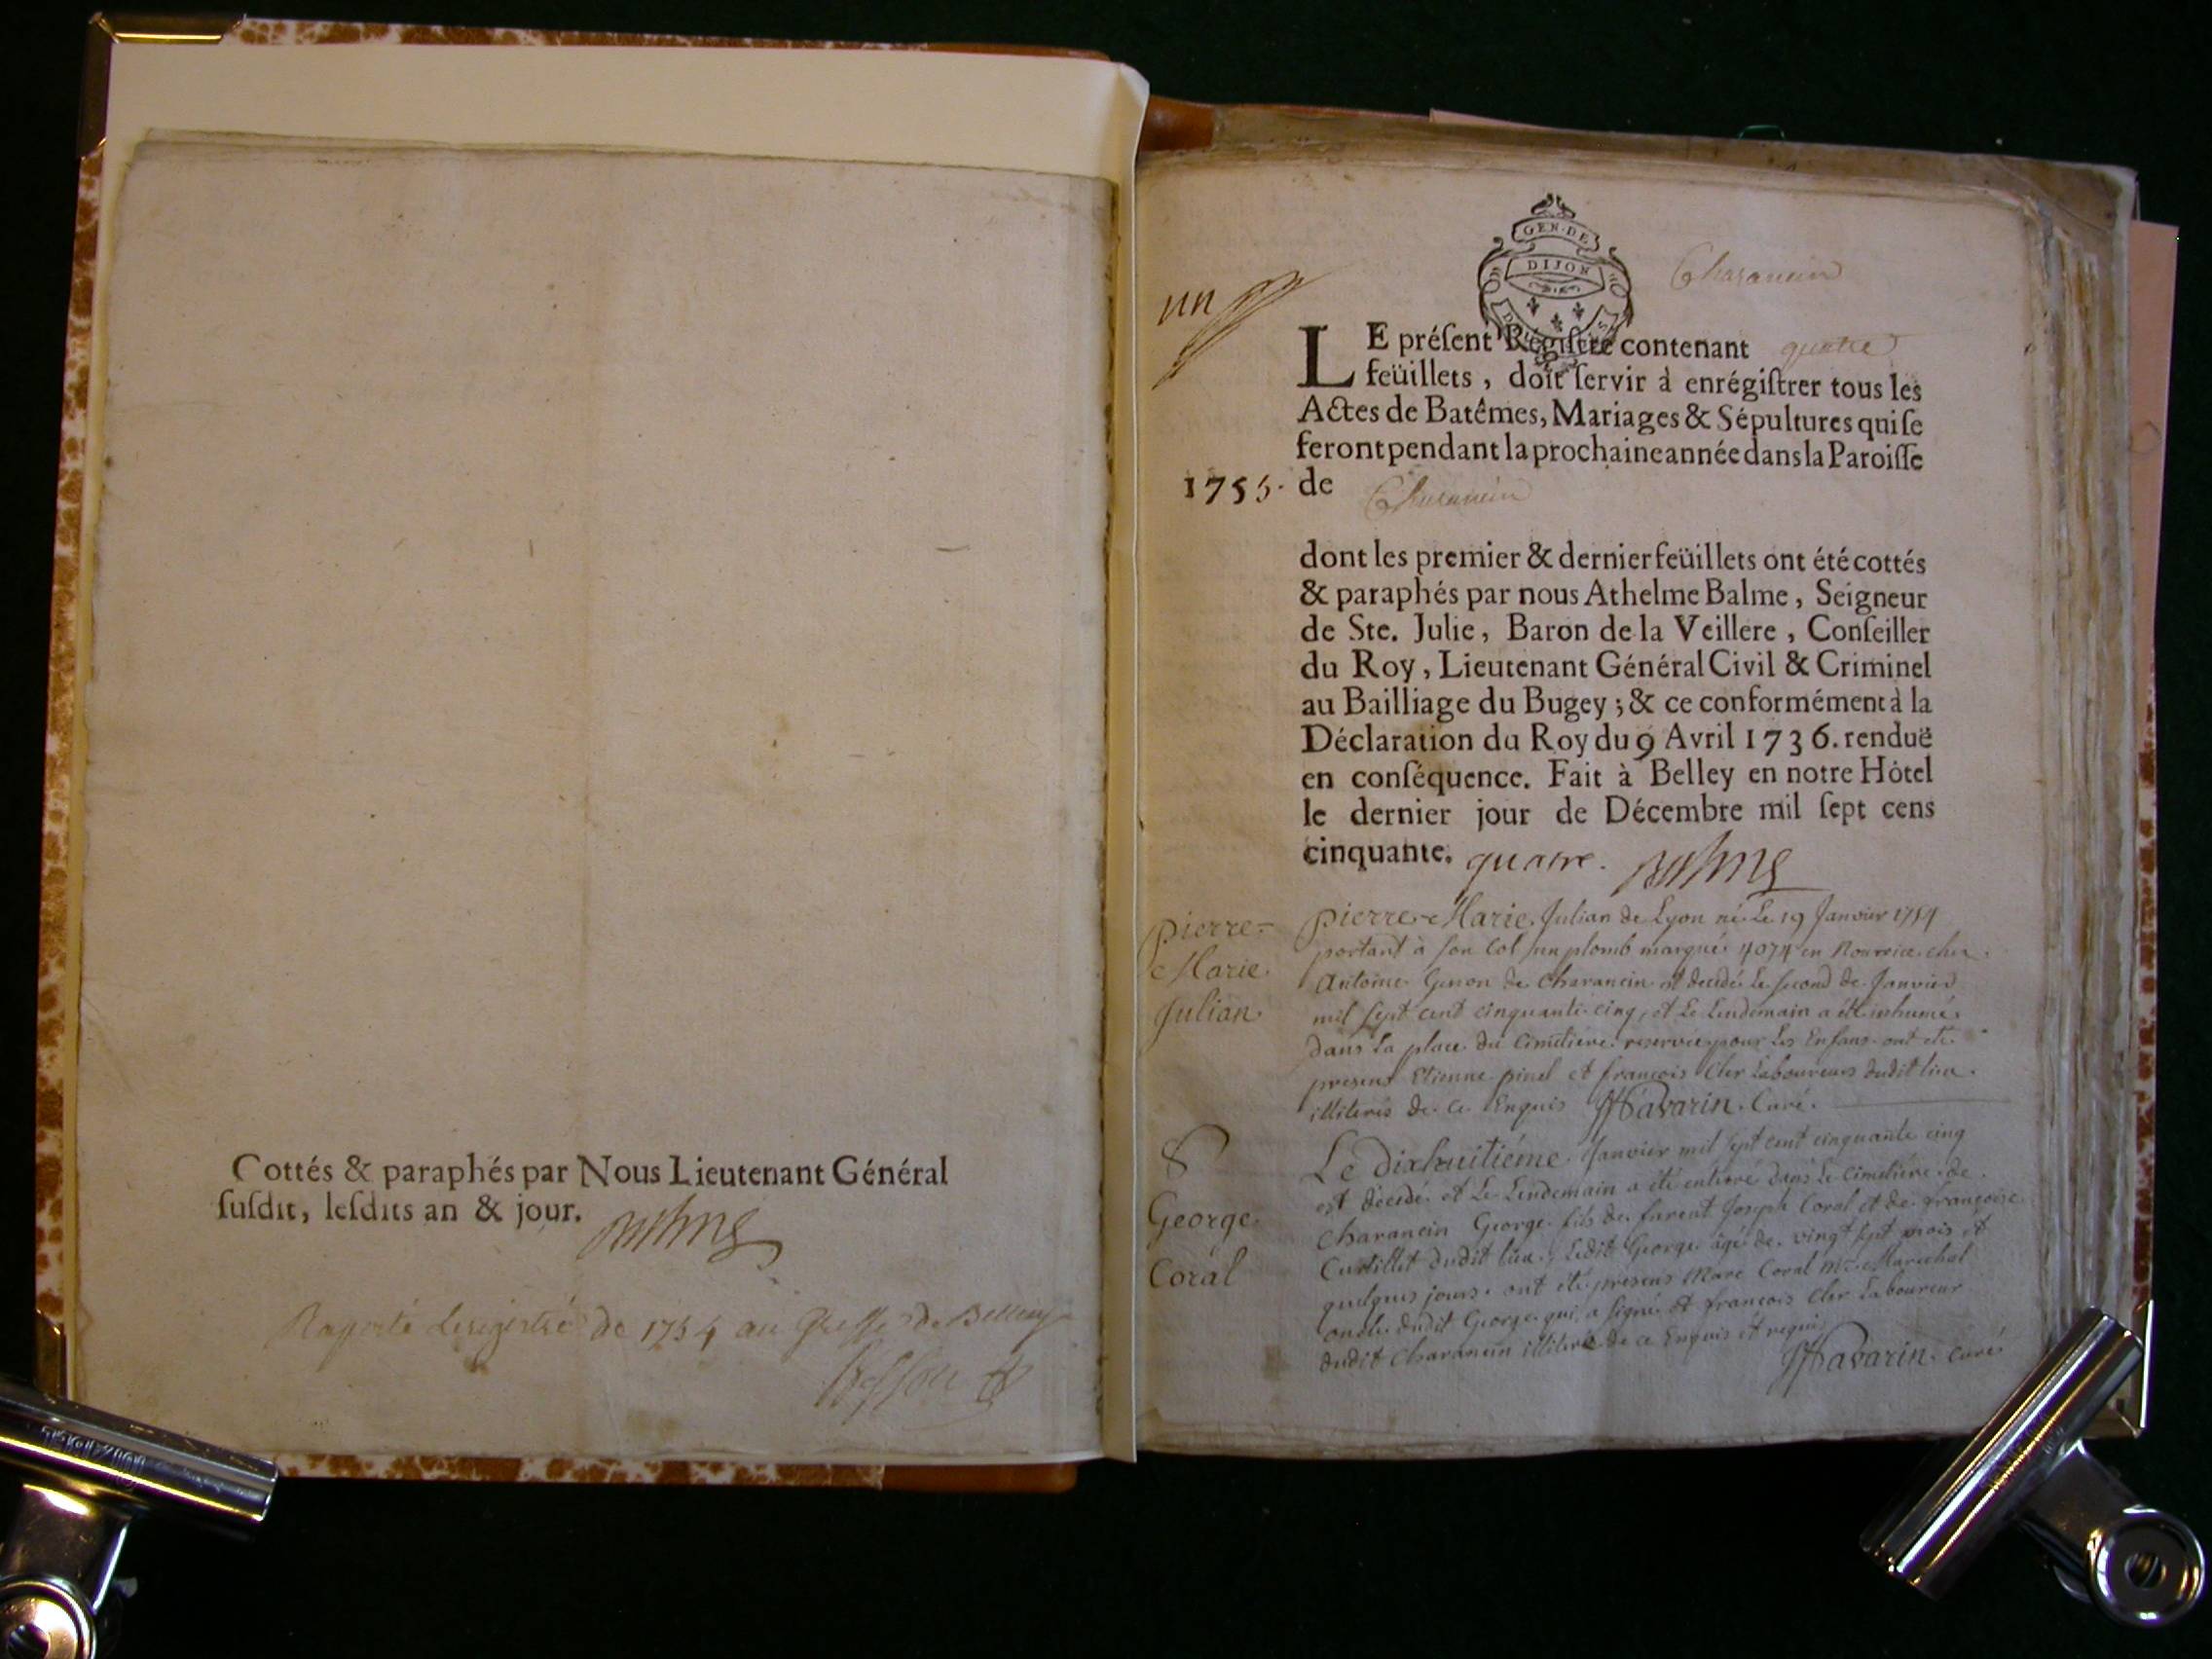 Cottés & paraphés par Nous Lieutenant Général
ſuſdit, leſdits an & jour.
de 1754 au Greffe de Belley
un
GEN·DE
DIJON
Charancin
LE préſent Régiſtre contenant quatre
feüillets, doit ſervir à enrégiſtrer tous les
Actes de Batêmes, Mariages & Sépultures qui ſe
feront pendant la prochaine année dans la Paroiſſe
1755. de Charancin
dont les premier & dernier feüillets ont été cottés
& paraphés par nous Athelme Balme, Seigneur
de Ste. Julie, Baron de la Veillere, Conſeiller
du Roy, Lieutenant Général Civil & Criminel
au Bailliage du Bugey; & ce conformément à la
Déclaration du Roy du 9 Avril 1736. renduë
en conſéquence. Fait à Belley en notre Hôtel
le dernier jour de Décembre mil ſept cens
cinquante. quatre. Balme
Pierre-
Marie
Julian
Pierre-Marie Julian de Lyon né Le 19 Janvier 1754
portant à son col un plomb marqué 4074 en Nourrice chez
Antoine de Charancin est decedé Le second de Janvier
mil sept cent cinquante cinq, et Le Lendemain a été inhumé
dans La place du Cimetiere reservée pour Les Enfans ont eté
presens Etienne pinel et françois Cler Laboureurs dudit lieu
illiterés de ce Enquis Favarin Curé.
S
George
Coral
Le Dixhuitiéme Janvier mil sept cent cinquante cinq
est decedé et Le Lendemain a été enterré dans Le Cimetiére de
Charancin George fils de furent Joseph Coral et de françoise
Curtillet dudit lieu, Ledit George âgé de vingt sept mois et
quelques jours. ont été presens Marc Coral me Marechal
oncle dudit George qui a signé et francois Cler Laboureur
dudit Charancin illiteré de ce Enquis et requis
Favarin curé